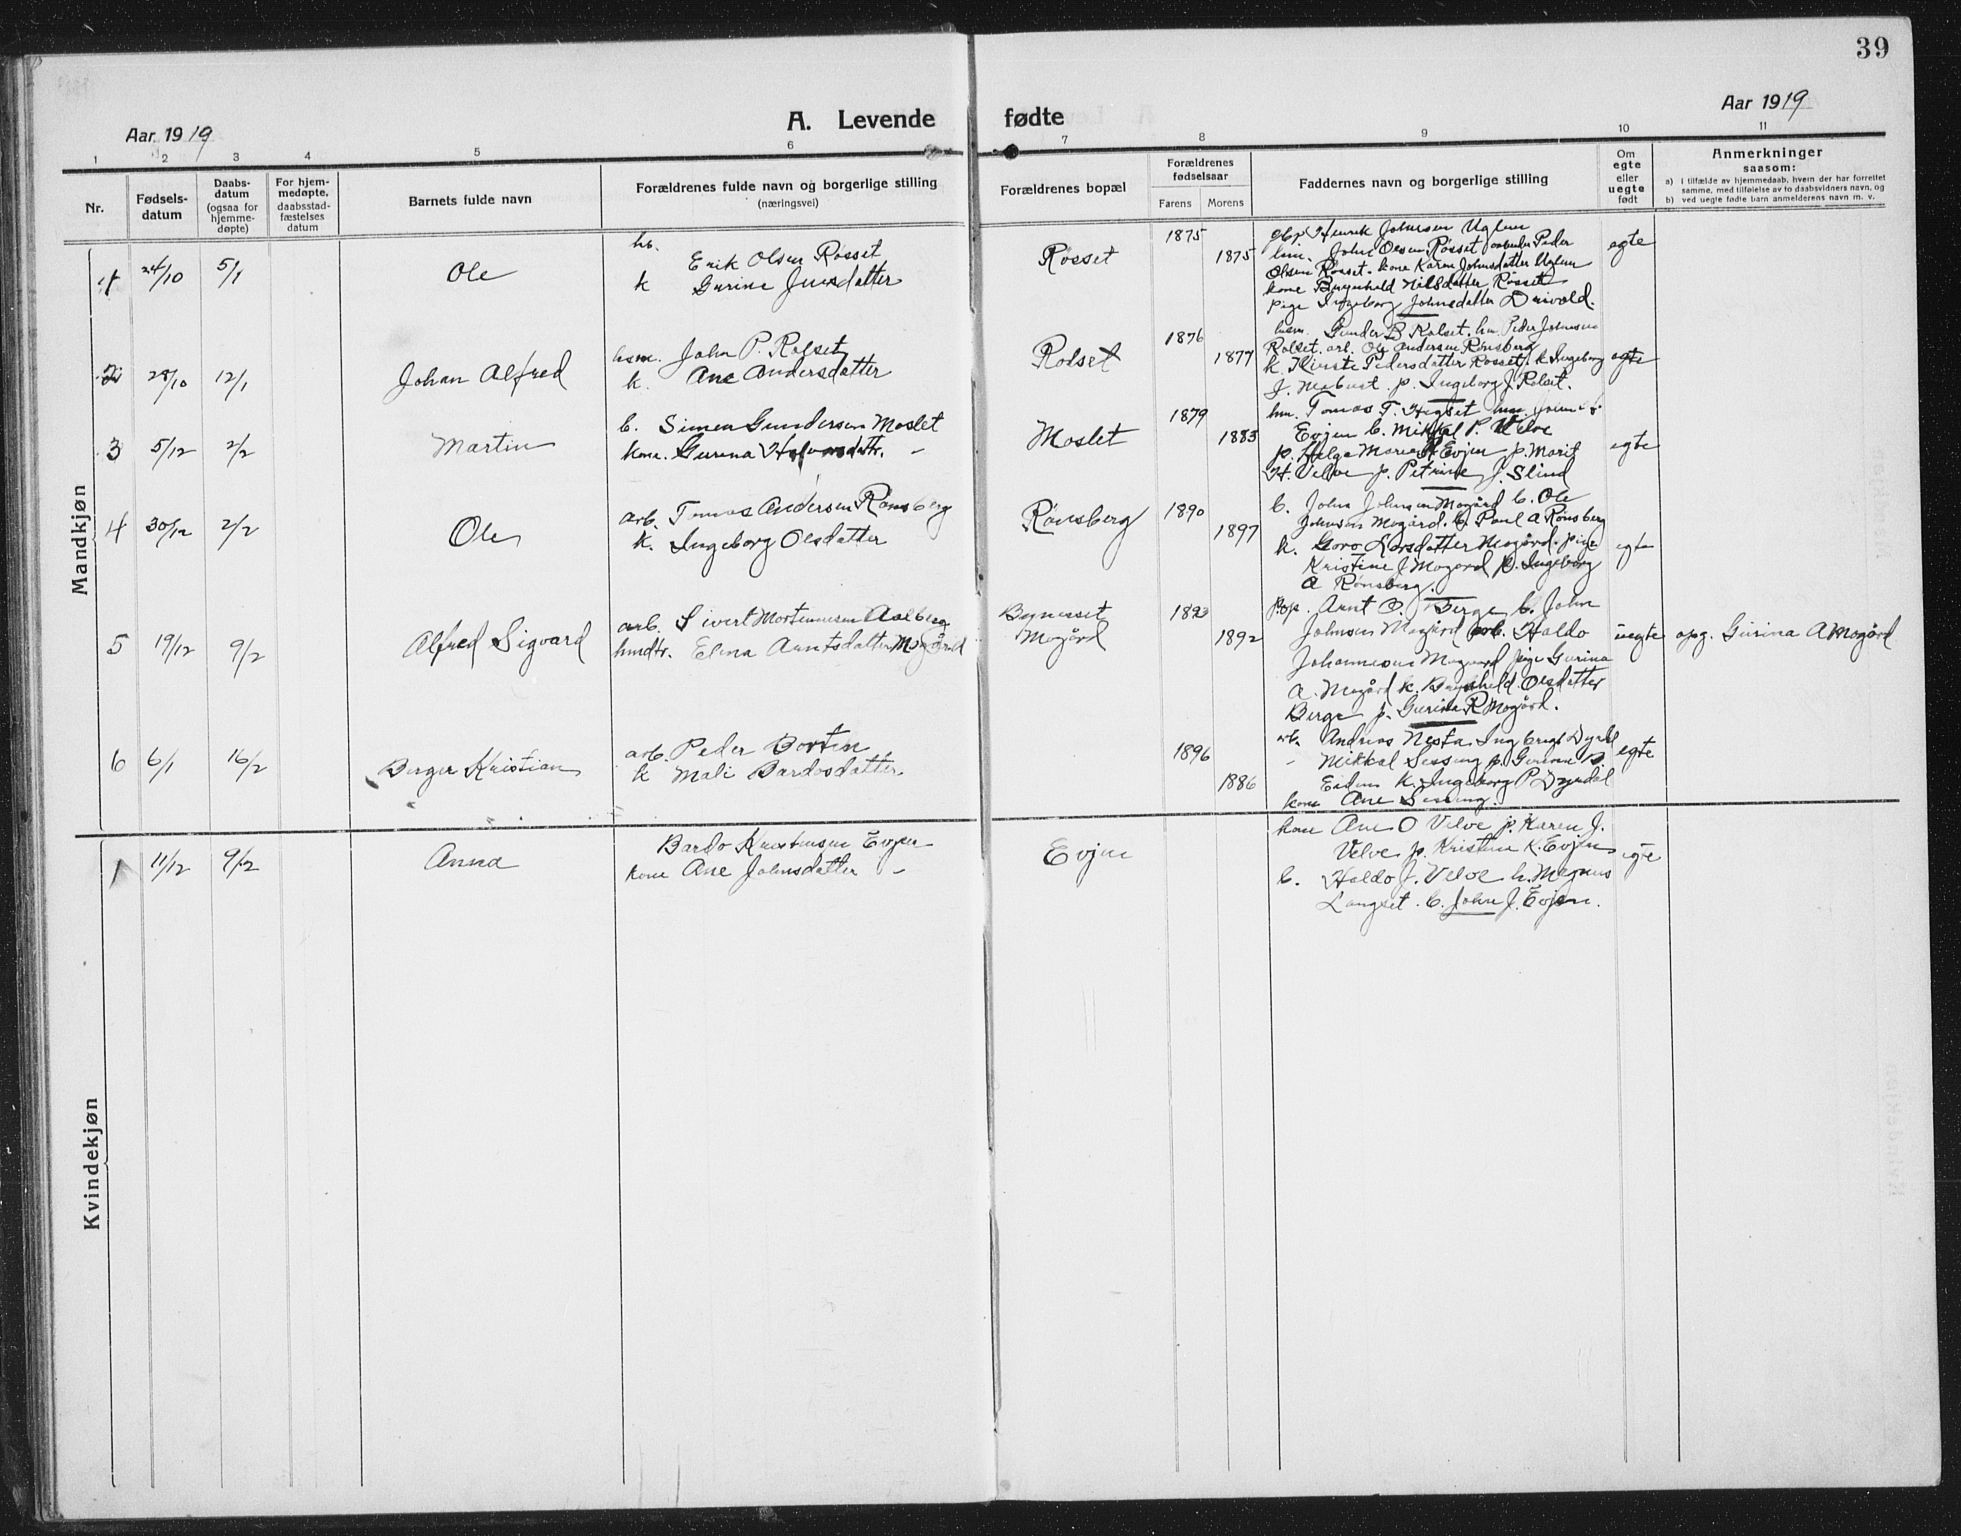 39
Aar 1919
A. Levende fødte
Aar 1919
1 2 3 4 5 6 7 8 9 10 11
Nr.
Fødsels-
datum
Daabs-
datum
(ogsaa for
hjemme-
døpte)
For hjem-
medøpte,
daabsstad-
fæstelses
datum
Barnets fulde navn
Forældrenes fulde navn og borgerlige stilling
(næringsvei)
Forældrenes bopæl
Forældrenes
fødselsaar
Farens Morens
Faddernes navn og borgerlige stilling
Om
egte
eller
uegte
født
Anmerkninger
saasom:
a) i tilfælde av hjemmedaab, hvem der har forrettet
samme, med tilføielse av to daabsvidners navn, og
b) ved uegte fødte barn anmelderens navn m. v.
Mandkjøn
1 24/10 5/1 Ole
Erik Olsen Røsset
k Gurine Jensdatter
Røsset 1875 1875
Henrik Johnsen Uglem
John Olsen Røsset arbeider Peder
Olsen Røsset. kone Karen Johnsdatter Uglem
kone Brynhild Nilsdatter Røsset
pige Ingeborg Johnsdatter Drivold.
egte
2 28/10 12/1 Johan Alfred
husm. John P. Rolset
k. Ane Andersdatter
Rolset 1876 1877
husm. Gunder B Rolset. hm. Peder Johnsen
Rolset. arb. Ole Andersen Rønsberg
k. Kirste Pedersdatter Rosset, k Ingeborg
J. Mebust p. Ingeborg J. Rolset.
egte
3 5/12 2/2 Martin
b. Simen Gundersen Moslet
kone. Gurina Halvorsdattr. -
Moslet 1879 1883
hm. Tomas T. Hegset hm. John
Evjen b. Mikkal P. Velve
p. Helga Marie Evjen p. Marit
H. Velve p. Petrine J. Slind
egte
4 30/12 2/2 Ole
arb. Tomas Andersen Rønsberg
k. Ingeborg Olsdatter
Rønsberg 1890 1897
b. John Johnsen Mogård b. Ole
Johnsen Mogård. b. Paul A Rønsberg
k. Goro Larsdatter Mogård. pige
Kristine J Mogård p. Ingeborg
A Rønsberg.
egte
5 19/12 9/2 Alfred Sigvard
arb. Sivert Mortensen Aelberg
hmdtr. Elena Arntsdatter Mogård
Bognesset
Mogård
1893 1892
Arnt O. Berge b. John
Johnsen Mogård arb. Haldo
Johannesen Mogaard pige Gurina
A. Mogård k. Brynhild Olsdatter
Berge p. Gurina R Mogård.
uegte opg. Gurina A Mogård
6 6/1 16/2 Berger Kristian
arb. Peder Bortin
k Mali Bardosdatter
1896 1886
arb. Andreas Nesta. Ingbrigt Dyrdal
- Mikkal Sessing p. Gurina B.
Eidem k. Ingeborg P Dyrdal
kone Ane Sessing.
egte
Kvindekjøn
1 11/12 9/2 Anna
Bardo Kristensen Evjen
kone Ane Johnsdatter -
Evjen
kone Ane O Velve p. Karen J.
Velve p. Kristine K. Evjen
b. Haldo J. Velve h. Magnus
Langset. b. John J. Evjen.
egte